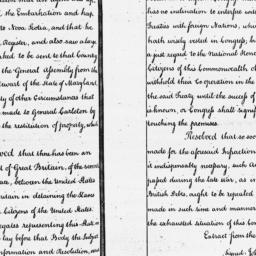 the Embarkation and
to Nova Scotia, and that he
Register, and also saw a large
asked to be sent to that County
the General Assembly from the
of the State of Maryland
of other Circumstances that
made to General Carleton by
the restitution of property, which
that there has been an
of Great Britain, of the
between the United States
in detaining the Slaves
Citizens of the United States
representing this State
lay before that Body the Subject
information and Resolution, and
has no inclination to interfere with
Treaties with foreign Nations, which
hath wisely vested in Congress; but
a just regard to the National Honor
Citizens of this Commonwealth
withhold their Co-operation in the
the said Treaty until the success of
is known, or Congress shall signify
touching the premises.
Resolved that so soon
made for the aforesaid Infraction
it indispensably necessary, such
passed during the late war, as
British Debts, ought to be repealed
made in such time and manner
the exhausted situation of this
Extract from the